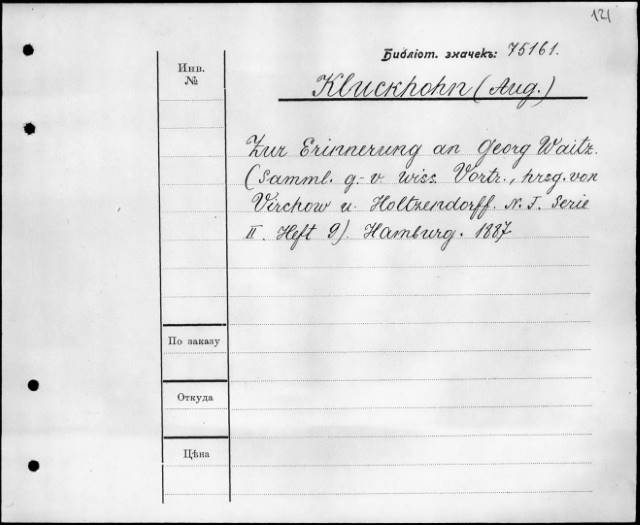 121
Библіот. значекъ: 75161.
Инв.
№
Kluckhohn (Aug.)
Zur Erinnerung an Georg Waitz.
(Samml. g.-v. wiss. Vortr., hrsg. von
Virchow u. Holtzendorff. N. F. Serie
II. Heft 9). Hamburg. 1887
По заказу
Откуда
Цѣна